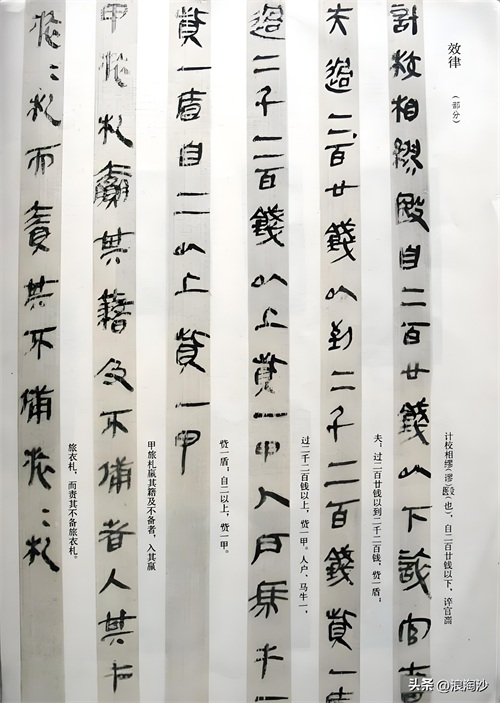 效律
（部分）
計校相繆殹自二百廿錢以下誶官嗇
计校相缪（谬）殹（也），自二百廿钱以下，谇官啬
夫過二百廿錢以到二千二百錢貲一盾
夫；过二百廿钱以到二千二百钱，赀一盾；
過二千二百錢以上貲一甲人戶馬牛一
过二千二百钱以上，赀一甲。人户、马牛一，
貲一盾自二以上貲一甲
赀一盾；自二以上，赀一甲。
甲旅札贏其籍及不備者入其
甲旅札赢其籍及不备者，入其赢
旅=札而責其不備旅=札
旅衣札，而责其不备旅衣札。
头条 @浪淘沙